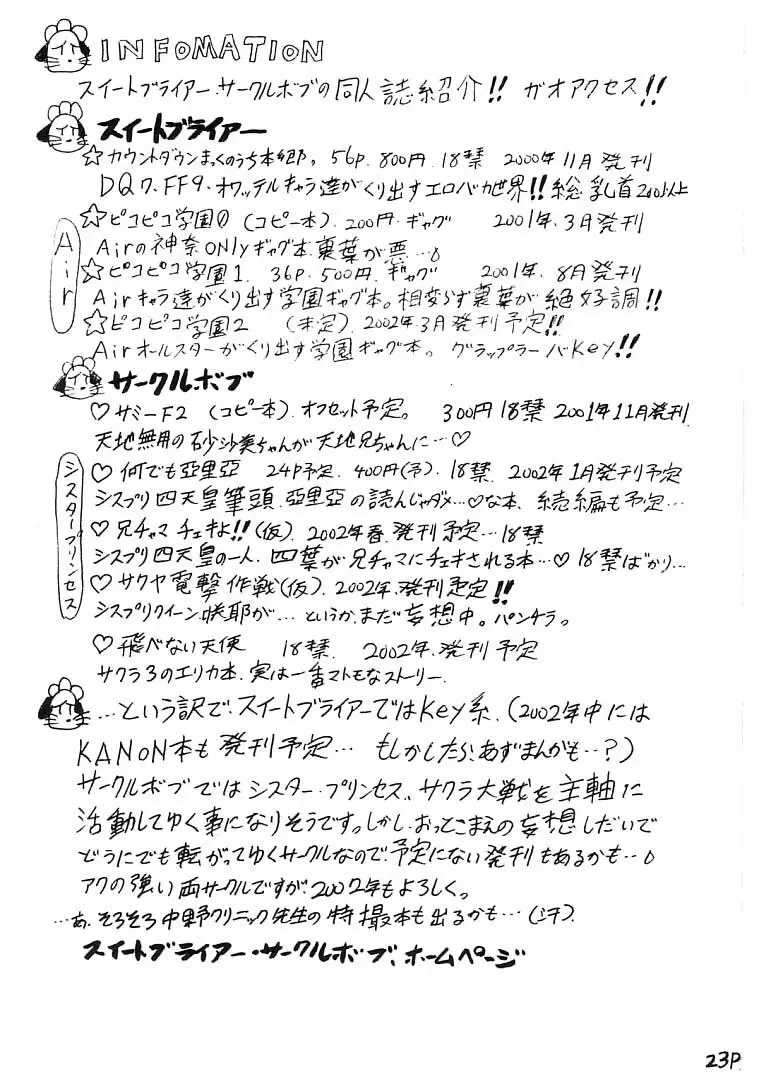 INFOMATION
スイートブライアー・サークルボブの同人誌紹介!! ガオアクセス!!
スイートブライアー
☆カウントダウンまっくのうち本郷。56p. 800円. 18禁 2000年11月発刊
DQ7、FF9、オワッテルキャラ達がくり出すエロバカ世界!!総乳首200以上
Air
☆ピコピコ学園0 (コピー本). 200円. ギャグ 2001年. 3月発刊
Airの神奈ONlyギャグ本裏葉が悪…。
☆ピコピコ学園1. 36p. 500円. ギャグ 2001年. 8月発刊
Airキャラ達がくり出す学園ギャグ本。相変らず裏葉が絶好調!!
☆ピコピコ学園2 (未定). 2002年. 3月発刊予定!!
Airオールスターがくり出す学園ギャグ本。グラップラーバKey!!
サークルボブ
♡サミーF2 (コピー本). オフセット予定。 300円 18禁 2001年11月発刊
天地無用の砂沙美ちゃんが天地兄ちゃんに…♡
シスタープリンセス
♡何でも亞里亞 24p予定. 400円(予). 18禁. 2002年1月発刊予定
シスプリ四天皇筆頭. 亞里亞の読んじゃダメ…♡な本、続編も予定…
♡兄チャマチェキよ!!(仮). 2002年春. 発刊予定…18禁
シスプリ四天皇の一人. 四葉が兄チャマにチェキされる本…♡ 18禁ばかり…
♡サクヤ電撃作戦(仮). 2002年. 発刊予定!!
シスプリクイーン咲耶が…というか、まだ妄想中。パンチラっ
♡飛べない天使 18禁 2002年. 発刊予定
サクラ3のエリカ本. 実は一番マトモなストーリー.
…という訳で、スイートブライアーではKey系.(2002年中には
KANON本も発刊予定… もしかしたら、あずまんがも…?)
サークルボブではシスター・プリンセス、サクラ大戦を主軸に
活動してゆく事になりそうですっしかし、おっとこまえの妄想しだいで
どうにでも転がってゆくサークルなので、予定にない発刊もあるかも…。
アクの強い両サークルですが、2002年もよろしく。
…あ、そろそろ中野クリニック先生の特撮本も出るかも…(汗).
スイートブライアー・サークルボブ、ホームページ
23P